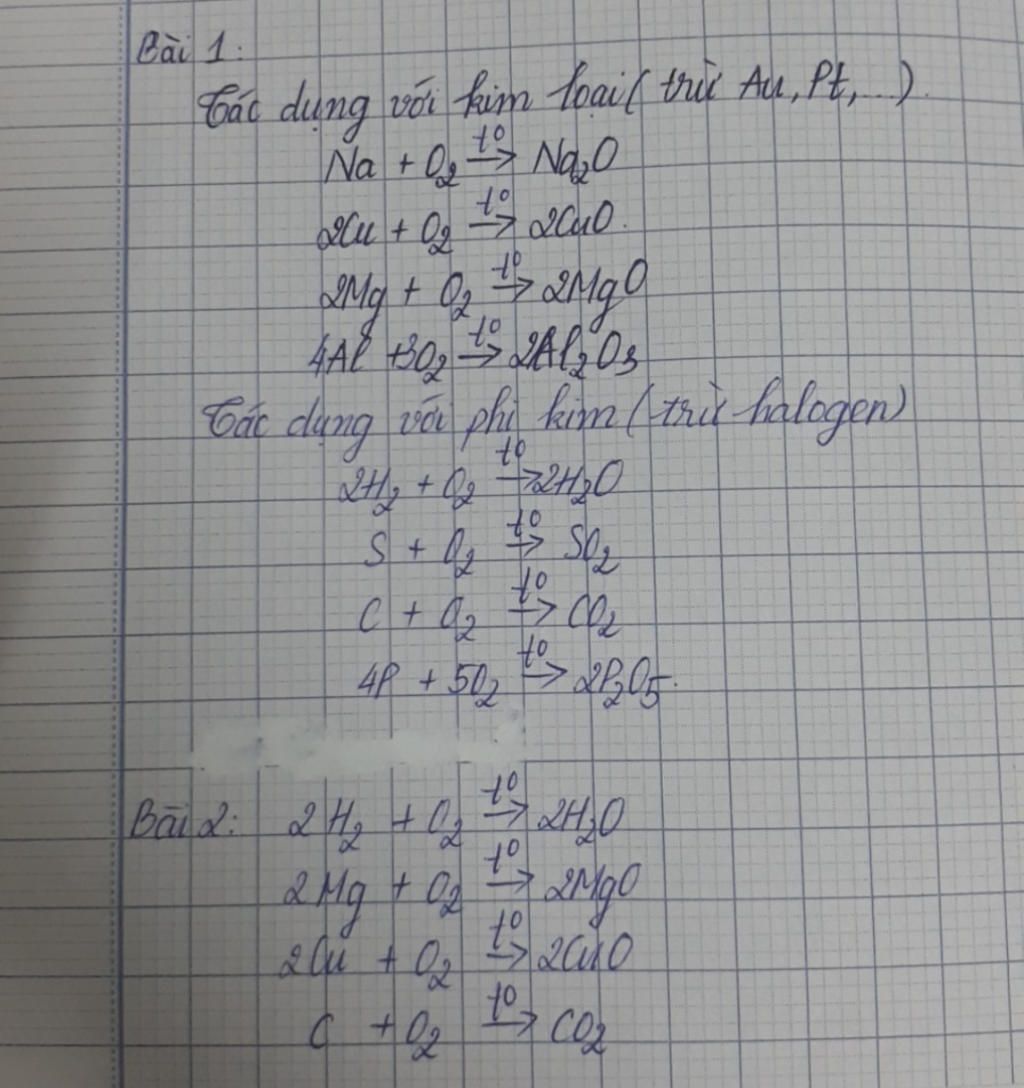 Bài 1:
Tác dụng với kim loại ( trừ Au, Pt, ...)
Na + O₂ t⁰→ Na₂O
2Cu + O₂ t⁰→ 2CuO.
2Mg + O₂ t⁰→ 2MgO
4Al + 3O₂ t⁰→ 2Al₂O₃
Tác dụng với phi kim ( trừ halogen)
2H₂ + O₂ t⁰→ 2H₂O
S + O₂ t⁰→ SO₂
C + O₂ t⁰→ CO₂
4P + 5O₂ t⁰→ 2P₂O₅.
Bài 2: 2H₂ + O₂ t⁰→ 2H₂O
2Mg + O₂ t⁰→ 2MgO
2Cu + O₂ t⁰→ 2CuO
C + O₂ t⁰→ CO₂